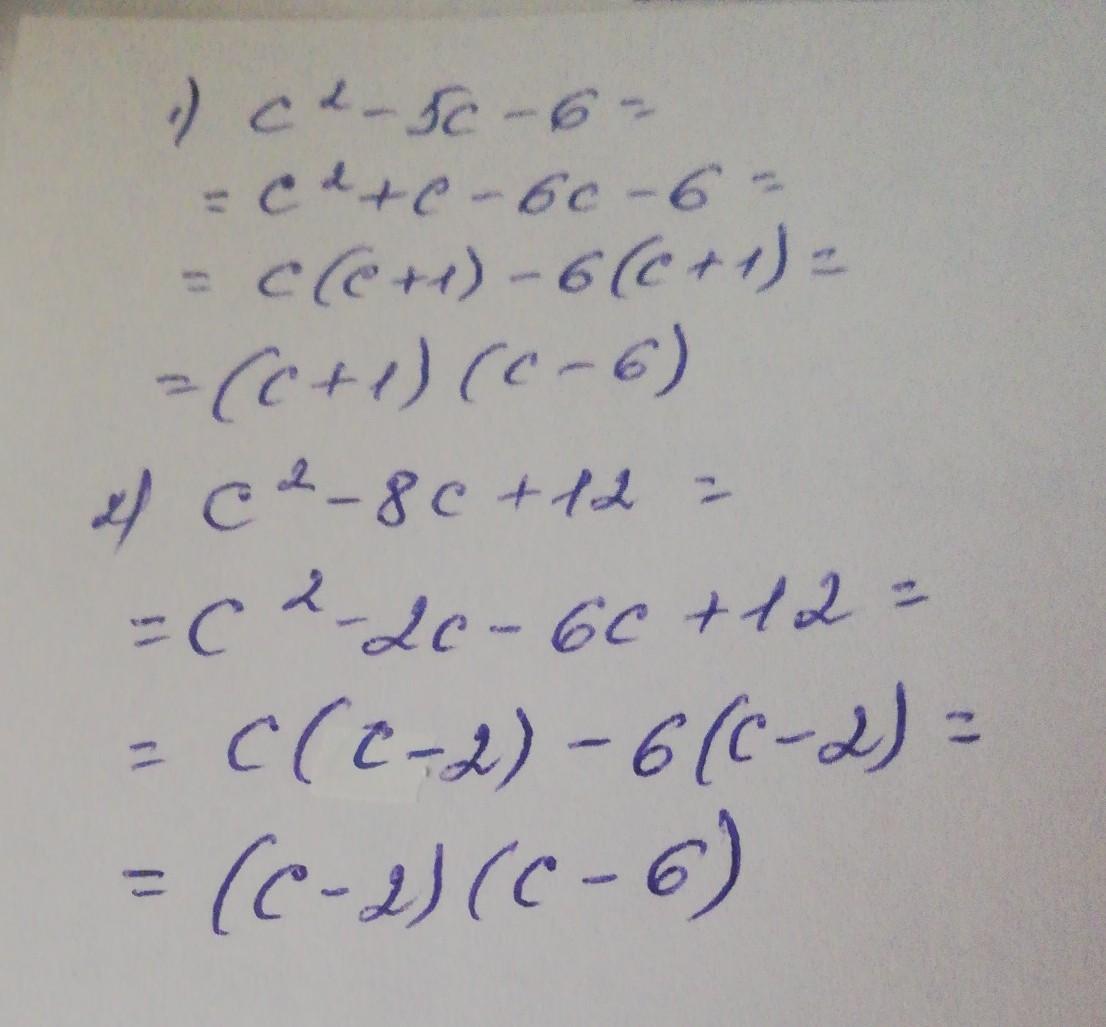 1) c² - 5c - 6 =
= c² + c - 6c - 6 =
= c(c+1) - 6(c+1) =
= (c+1)(c-6)
2) c² - 8c + 12 =
= c² - 2c - 6c + 12 =
= c(c-2) - 6(c-2) =
= (c-2)(c-6)